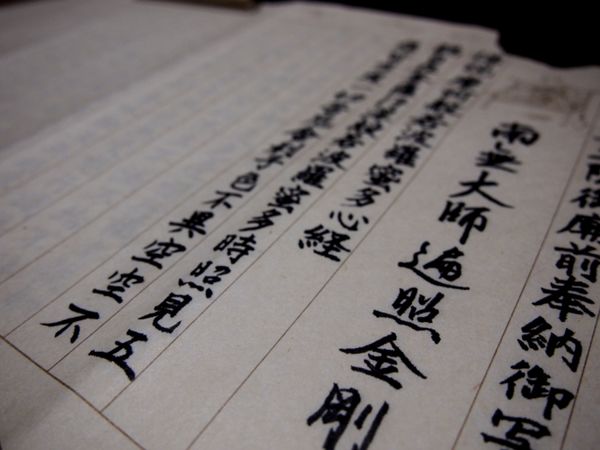 御廟前奉納御写
南無大師遍照金剛
摩訶般若波羅蜜多心経
行深般若波羅蜜多時照見五
一切苦厄舎利子色不異空空不